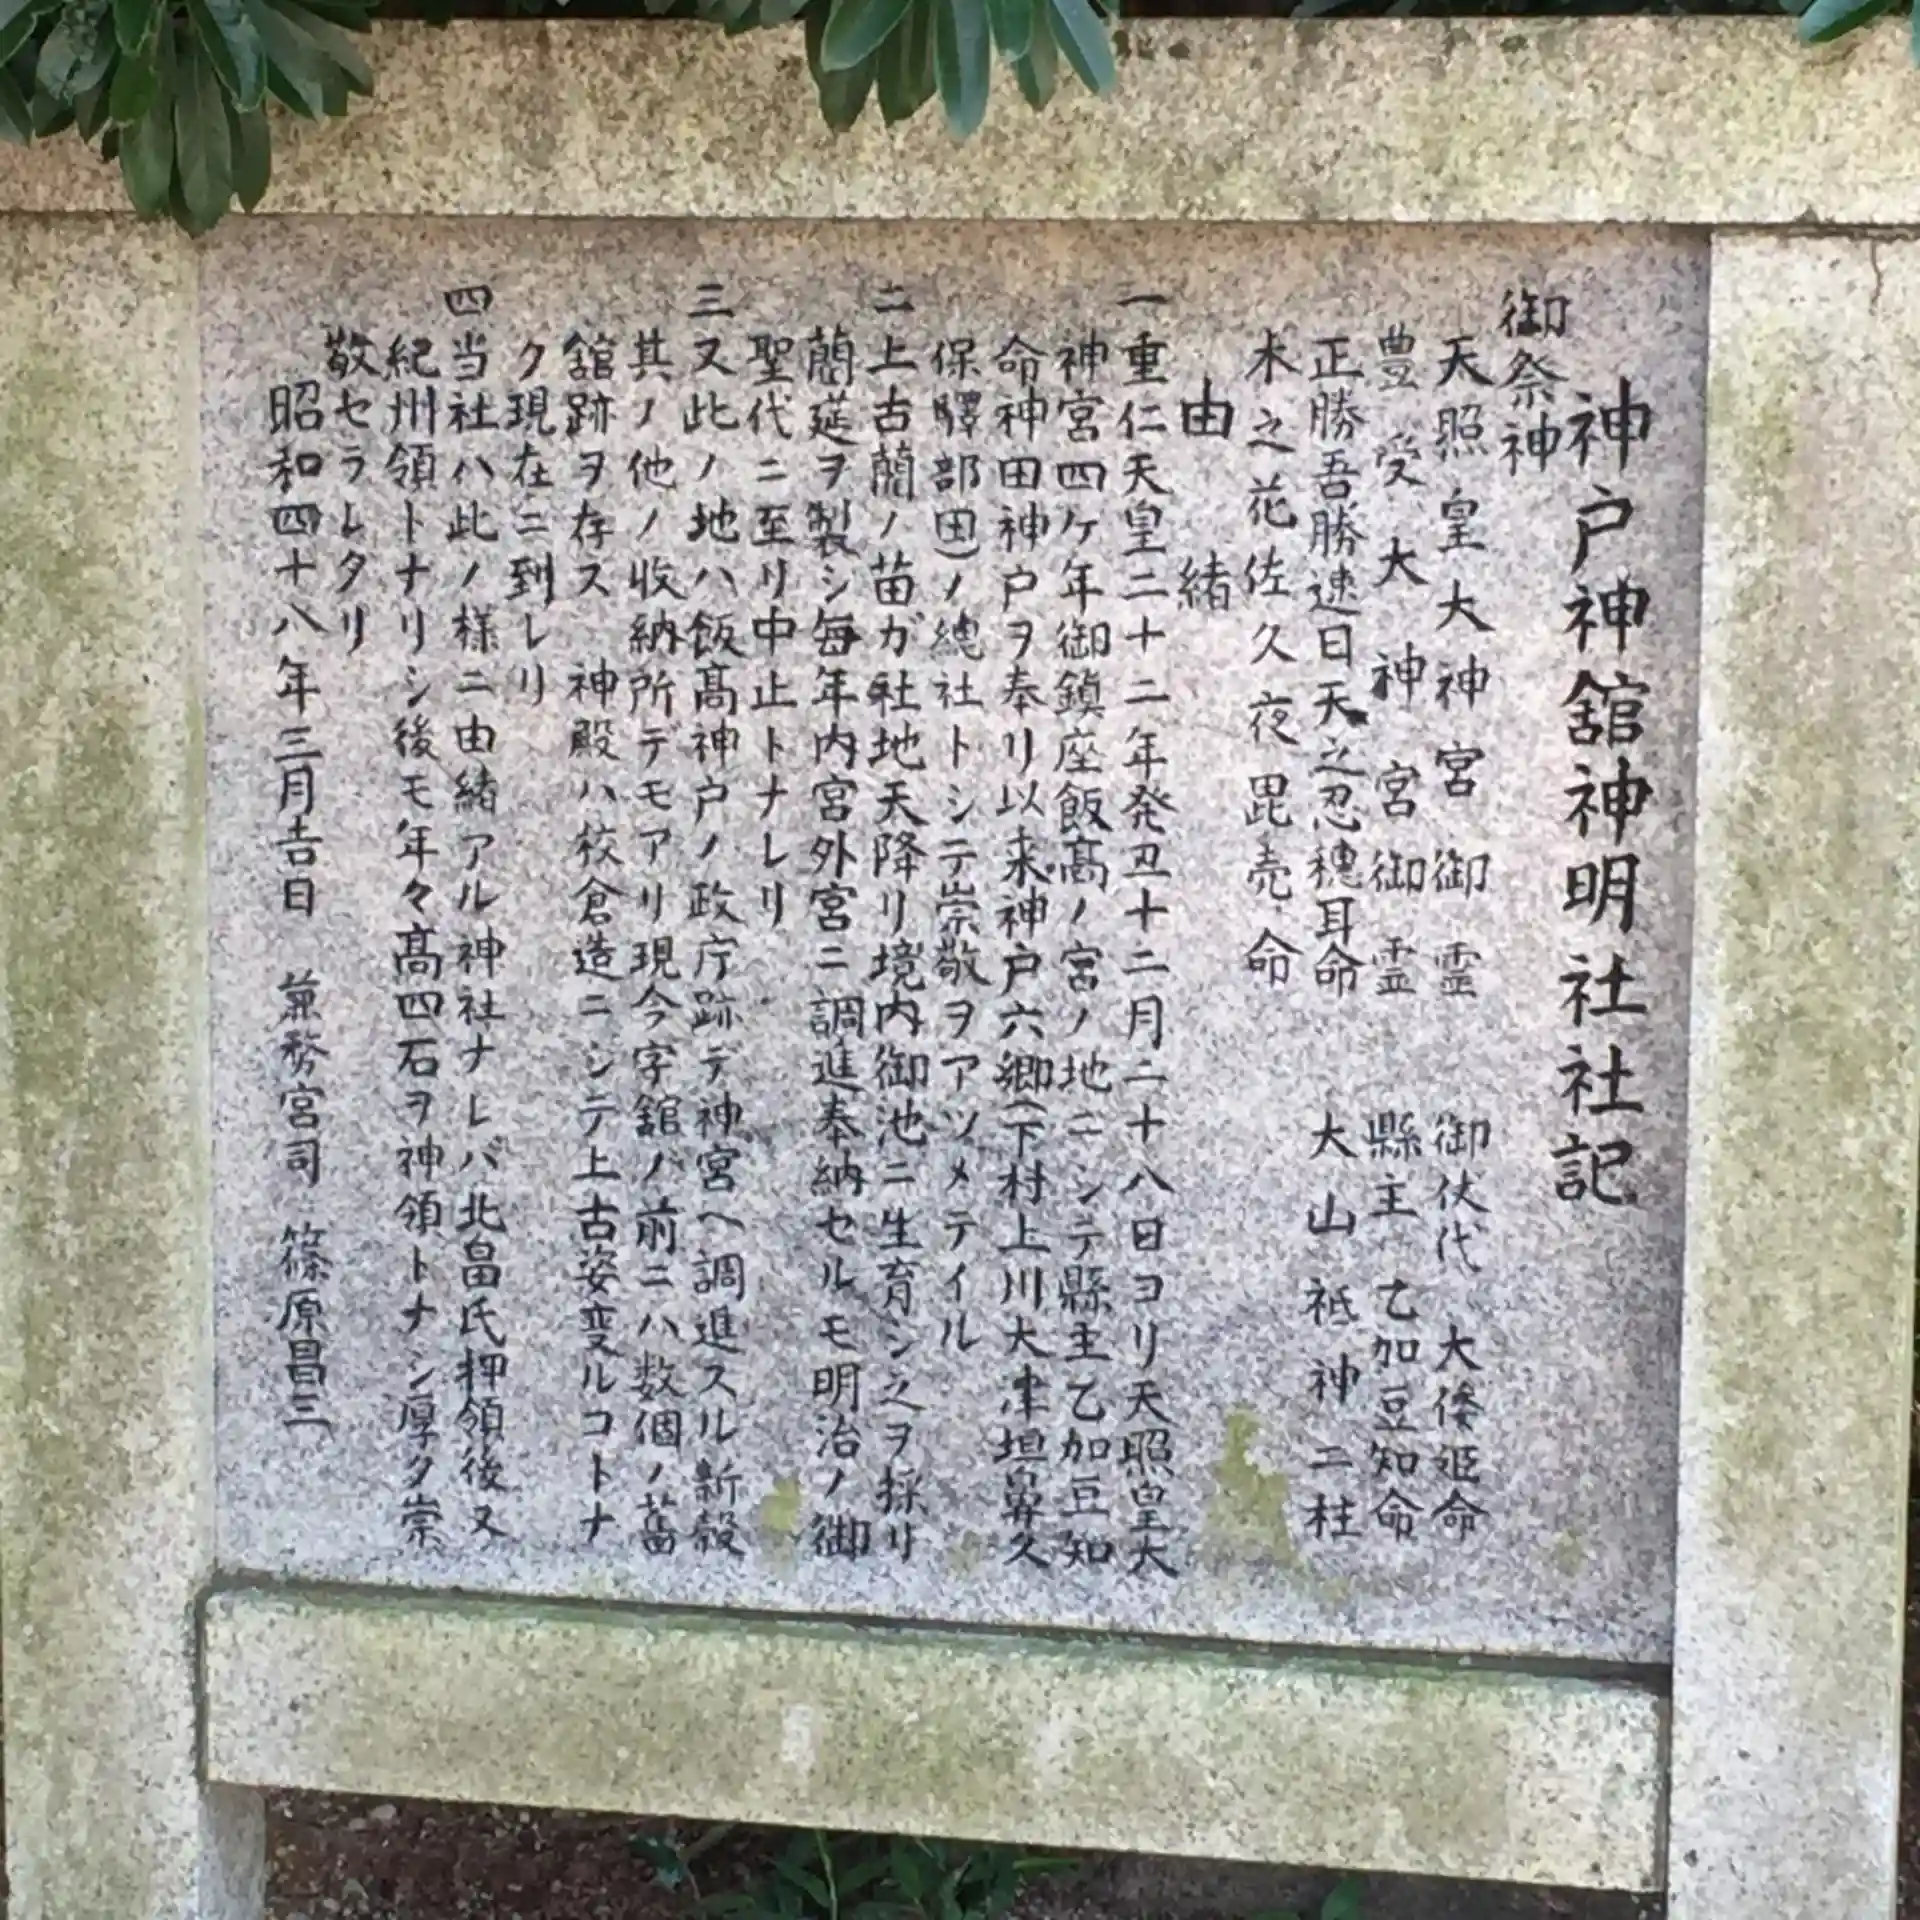 神戸神舘神明社社記
御祭神
天照皇大神宮御霊　御伏代　大倭姫命
豊受大神宮御霊　縣主　乙加豆知命
正勝吾勝速日天之忍穂耳命　大山祇神　二柱
木之花佐久夜毘売命
由緒
一重仁天皇二十二年発丑十二月二十八日ヨリ天照皇大
神宮四ケ年御鎮座飯高ノ宮ノ地ニシテ縣主乙加豆知
命神田神戸ヲ奉リ以来神戸六郷（下村上川大津垣鼻久
保驛部田）ノ總社トシテ崇敬ヲアツメテイル
二上古藺ノ苗ガ社地天降リ境内御池ニ生育シ之ヲ採リ
藺莚ヲ製シ毎年内宮外宮ニ調進奉納セルモ明治ノ御
聖代ニ至リ中止トナレリ
三又此ノ地ハ飯高神戸ノ政庁跡デ神宮ヘ調進スル新穀
其ノ他ノ收納所デモアリ現今字舘ノ前ニハ数個ノ舊
舘跡ヲ存ス　神殿ハ校倉造ニシテ上古姿変ルコトナ
ク現在ニ到レリ
四当社ハ此ノ様ニ由緒アル神社ナレバ北畠氏押領後又
紀州領トナリシ後モ年々高四石ヲ神領トナシ厚ク崇
敬セラレタリ
昭和四十八年三月吉日　兼務宮司　篠原昌三